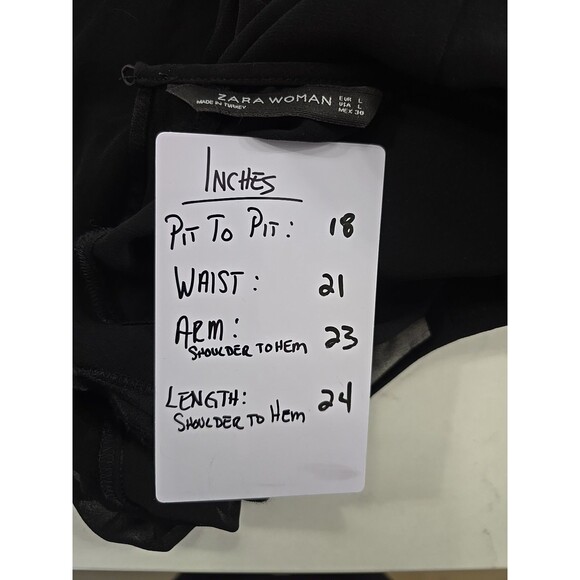 ZARA WOMAN
MADE IN TURKEY
EUR L
USA L
MEX 30
INCHES
PIT TO PIT: 18
WAIST: 21
ARM: 23
SHOULDER TO HEM
LENGTH: 24
SHOULDER TO HEM